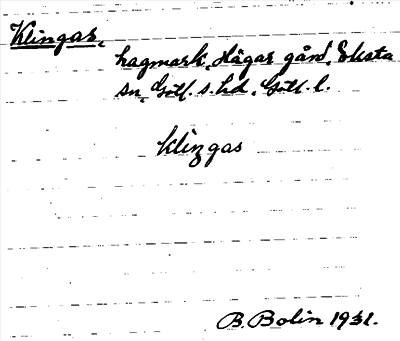 Klingar,
hagmark, Hägar gård, Eksta
sn, Gotl. s. hd, Gotl. l.
klingas
B. Bolin 1931.